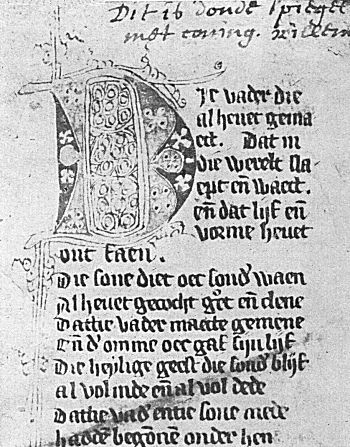 Dit is donde spiegel
met coning. willem
Die vader die
al hevet gema
ect. Dat in
die werelt sla
ept eñ waect.
eñ dat lijf eñ
vorme hevet
ont faen.
Die sone diet oec sond' waen
Al hevet gecocht g'et eñ clene
Dattie vader maecte gemene
Eñ d'omme oec gaf sijn lijf
Die heylige geest die sond' blijf
al vol inde eñ al vol dede
Dattie vad' entie sone mede
hadde begonnē onder hen